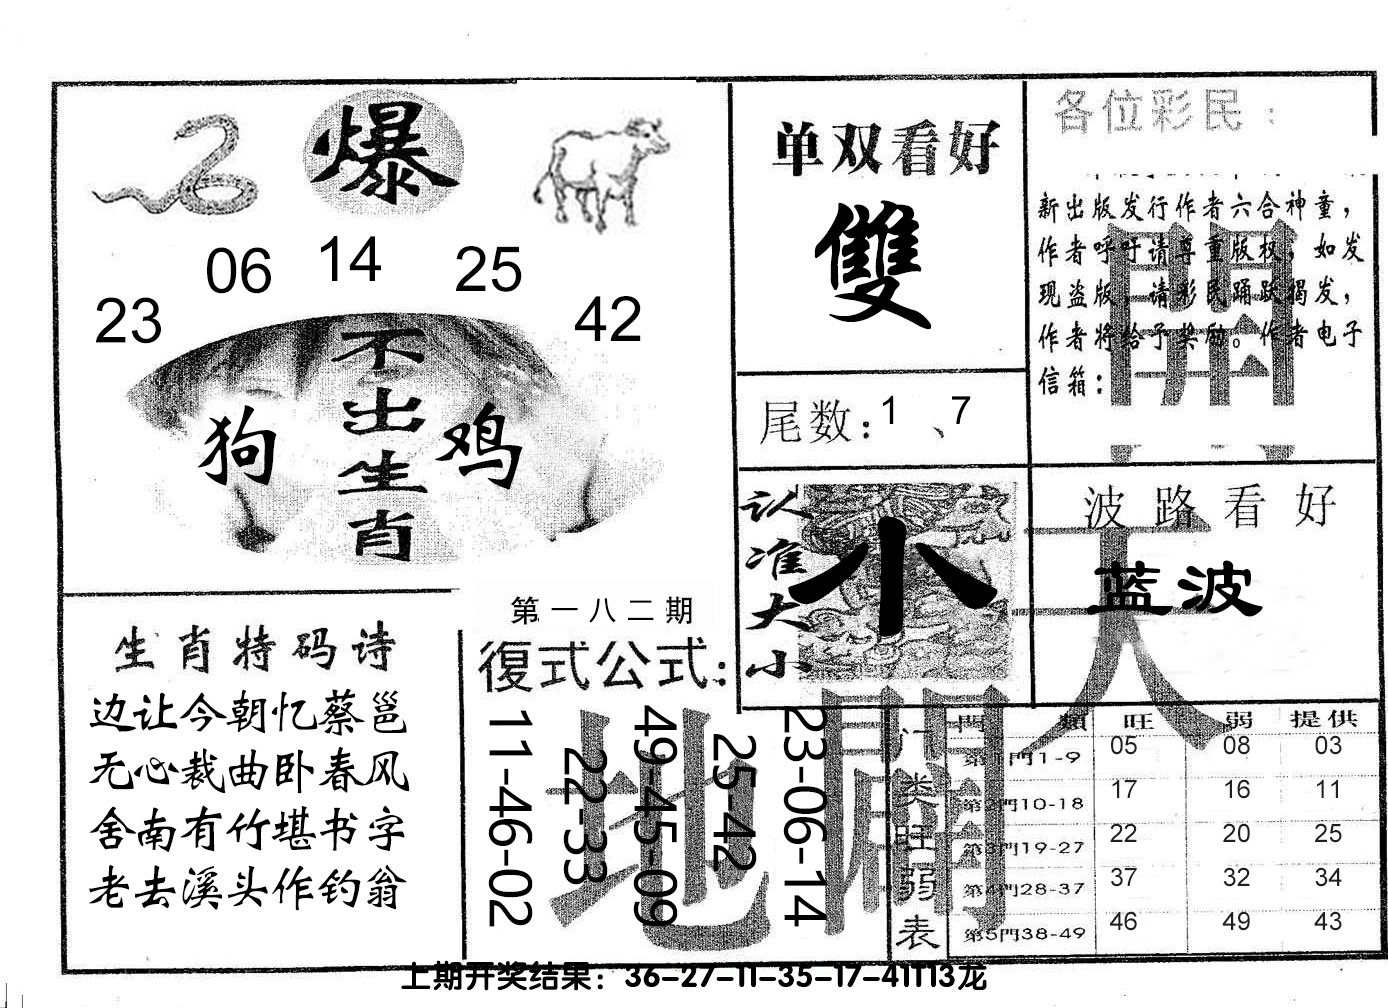 爆
06 14 25
23 42
不出生肖
狗 鸡
单双看好
雙
尾数：1 、7
各位彩民：
新出版发行作者六合神童，
作者呼吁请尊重版权，如发
现盗版，请彩民踊跃揭发，
作者将给予奖励。作者电子
信箱：
開
认准大小
小
波路看好
蓝波
天
生肖特码诗
边让今朝忆蔡邕
无心裁曲卧春风
舍南有竹堪书字
老去溪头作钓翁
第一八二期
復式公式：
11-46-02
22-33
49-45-09
25-42
23-06-14
地
门类旺弱表
門類 旺 弱 提供
第1門1-9 05 08 03
第2門10-18 17 16 11
第3門19-27 22 20 25
第4門28-37 37 32 34
第5門38-49 46 49 43
上期开奖结果：36-27-11-35-17-41T13龙